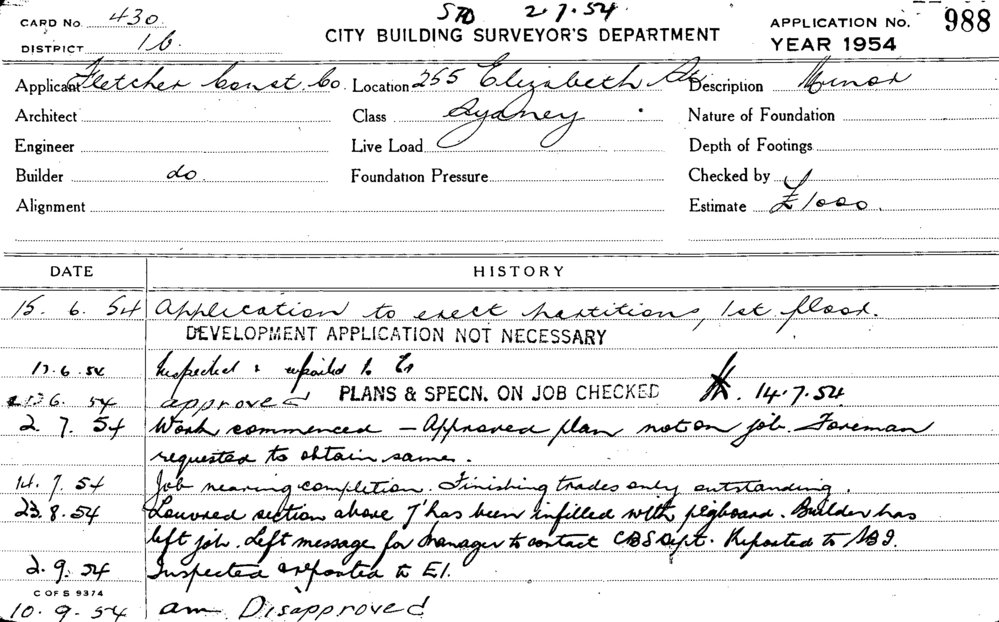 CARD No. 430 STD 2.7.54 APPLICATION No. 988
DISTRICT 1b CITY BUILDING SURVEYOR'S DEPARTMENT YEAR 1954
Applicant Fletcher Const. Co. Location 255 Elizabeth St Description Minor
Architect Class Sydney Nature of Foundation
Engineer Live Load Depth of Footings
Builder do Foundation Pressure Checked by
Alignment Estimate £1000.
DATE HISTORY
15. 6. 54 Application to erect partitions, 1st floor.
DEVELOPMENT APPLICATION NOT NECESSARY
17.6.54 Inspected & reported to
6. 54 approved PLANS & SPECN. ON JOB CHECKED 14.7.54
2. 7. 54 Work commenced - Approved plan not on job. Foreman
requested to obtain same.
14. 7. 54 Job nearing completion. Finishing trades only outstanding.
23.8.54 Louvred section above 7' has been infilled with pegboard. Builder has
left job. Left message for manager to contact CBS Dept. Reported to
2.9.54 Inspected & reported to E1.
C OF S 9374
10. 9. 54 am Disapproved